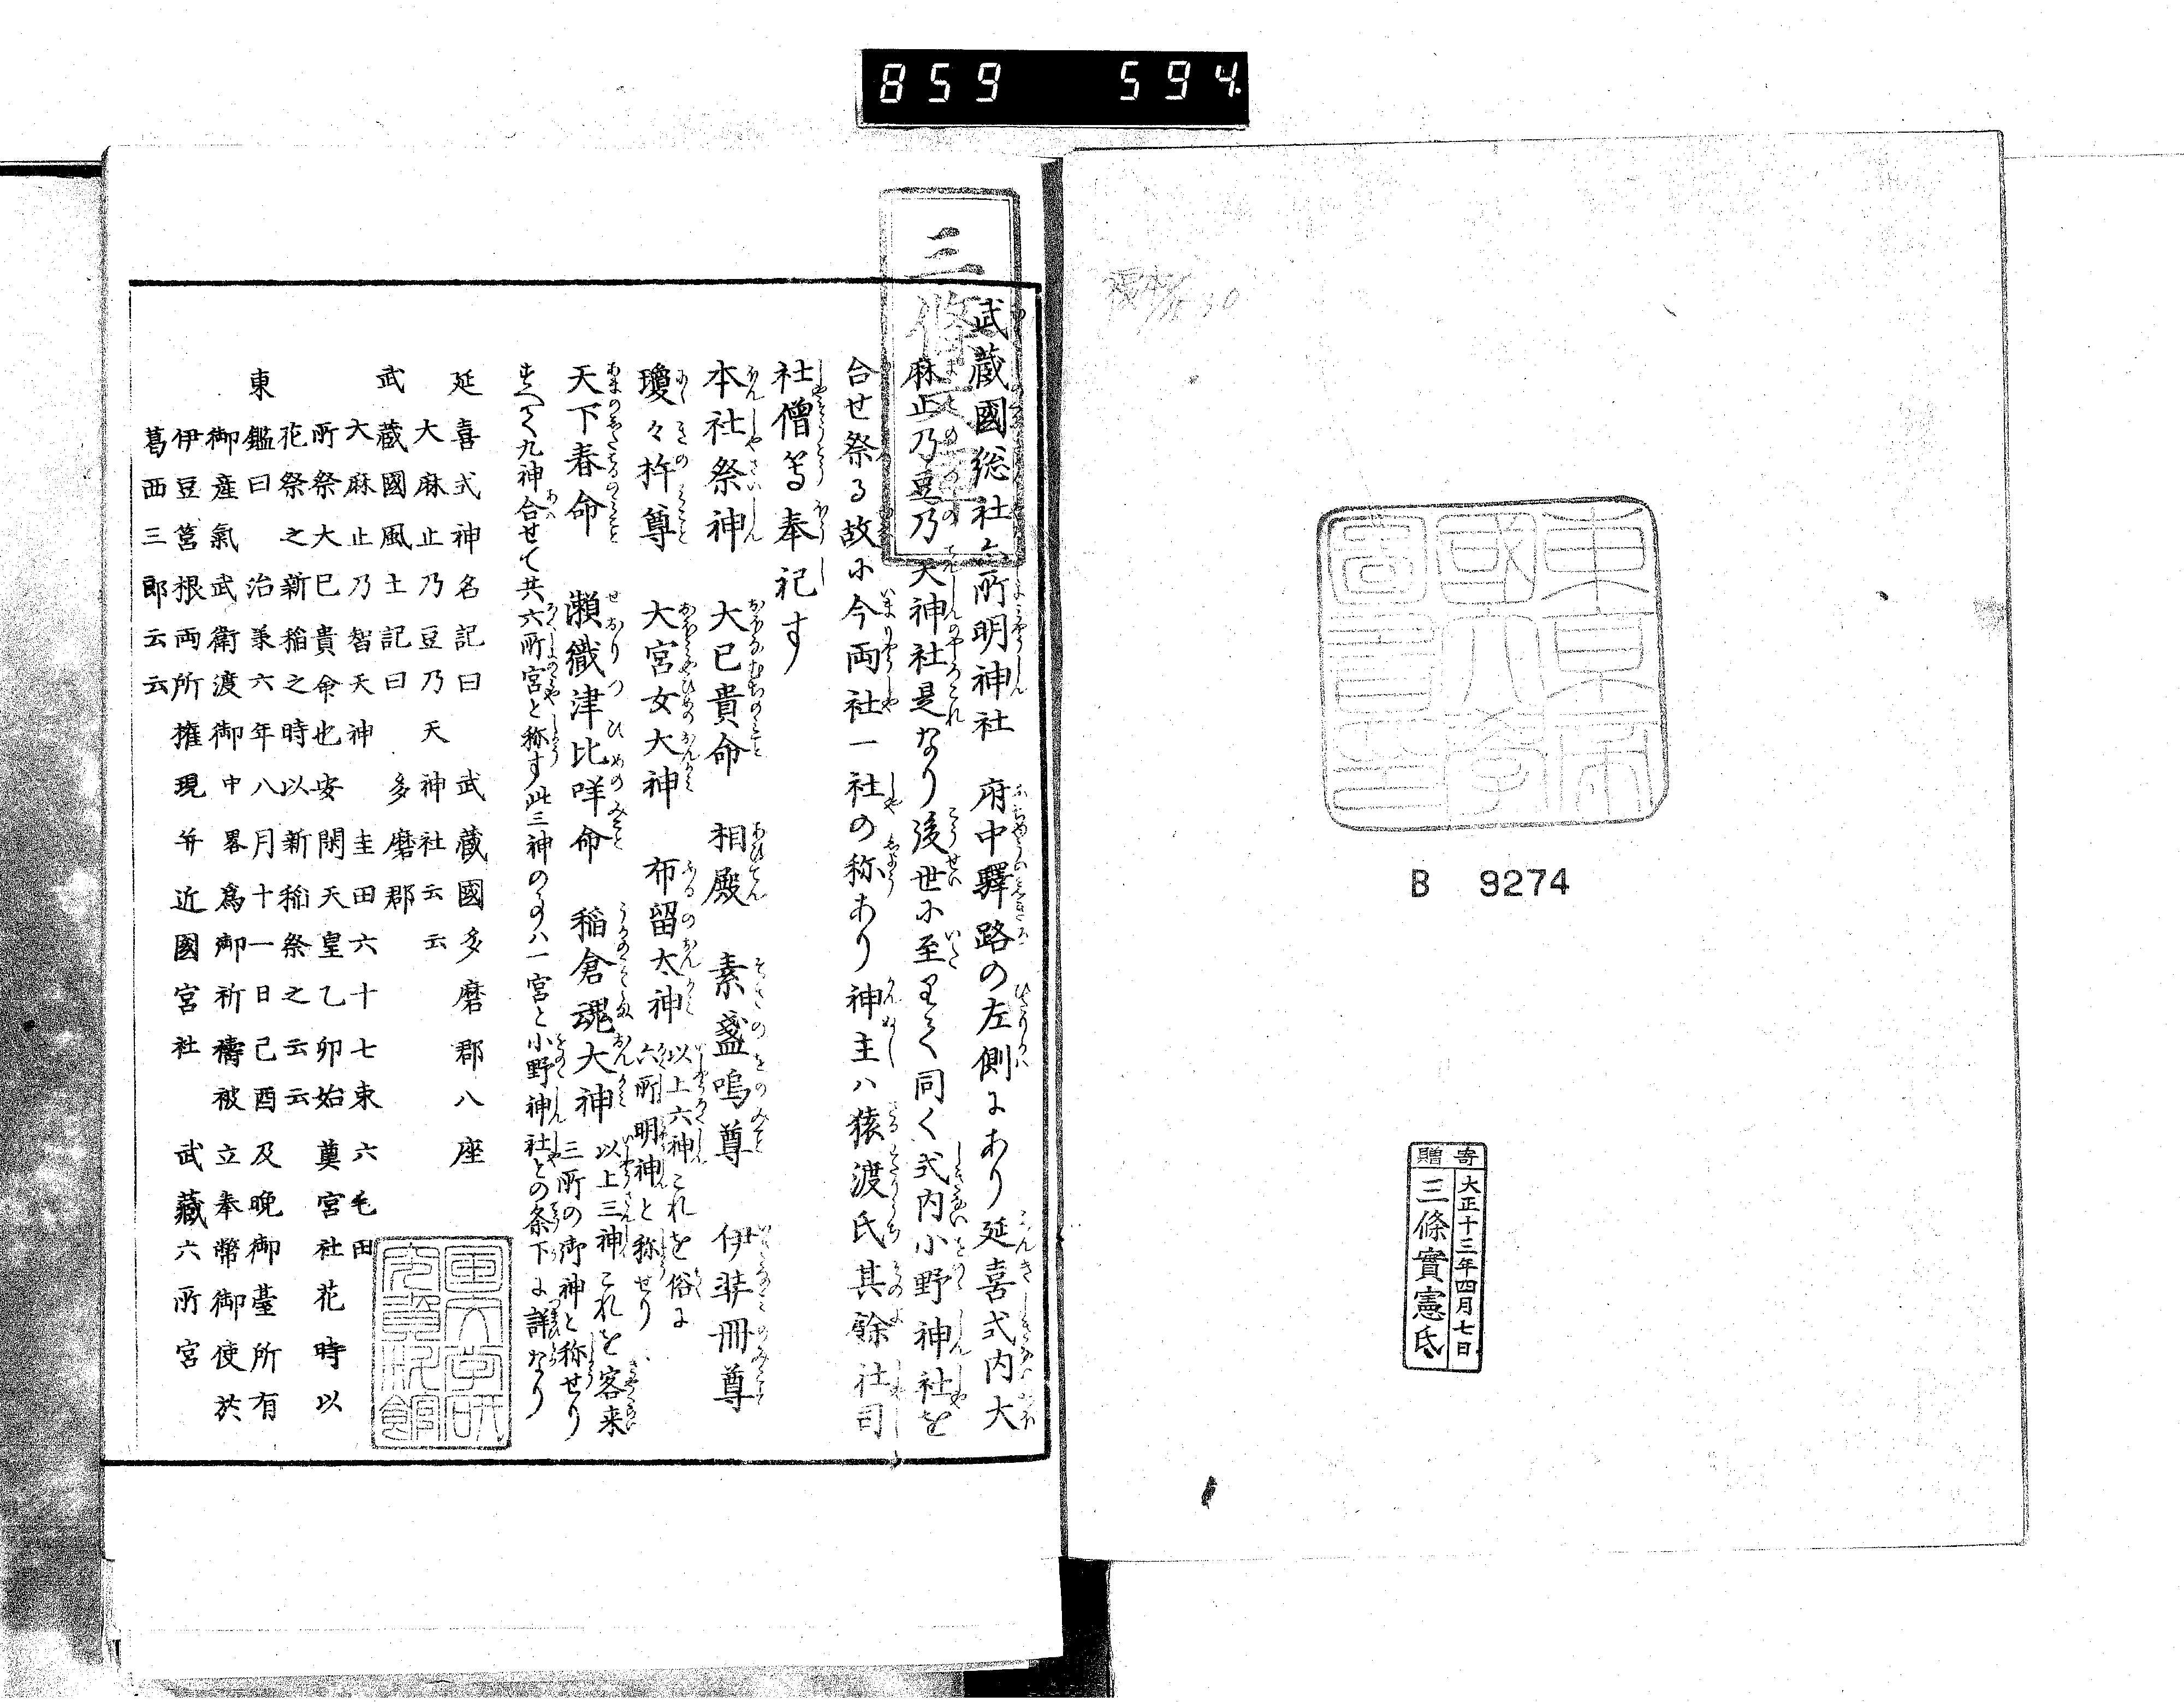 859 594.
東京帝
國大學
圖書印
B 9274
寄贈
大正十三年四月七日
三條實憲氏
武蔵國総社六所明神社 府中驛路の左側にあり延喜式内大
麻止乃豆乃天神社是なり後世に至りて同く式内小野神社を
合せ祭る故に今両社一社の称あり神主ハ猿渡氏其餘社司
社僧等奉祀す
本社祭神 大已貴命 相殿 素盞嗚尊 伊弉冊尊
瓊々杵尊 大宮女大神 布留太神 以上六神これを俗に
六所明神と称せり
天下春命 瀬織津比咩命 稲倉魂大神 以上三神これを客来
三所の御神と称せり
すへて九神合せて共六所宮と称す此三神の事ハ一宮と小野神社との条下に詳なり
延喜式神名記曰 武蔵國多磨郡八座
大麻止乃豆乃天神社云云
武蔵國風土記曰 多磨郡
大麻止乃智天神 圭田六十七束六毛田
所祭大已貴命也安閑天皇乙卯始奠宮社花時以
花祭之新稲之時以新稲祭之云云
東鑑曰 治承六年八月十一日己酉及晩御臺所有
御産氣武衛渡御中畧爲御祈禱被立奉幣御使於
伊豆筥根両所権現并近國宮社 武蔵六所宮
葛西三郎云云